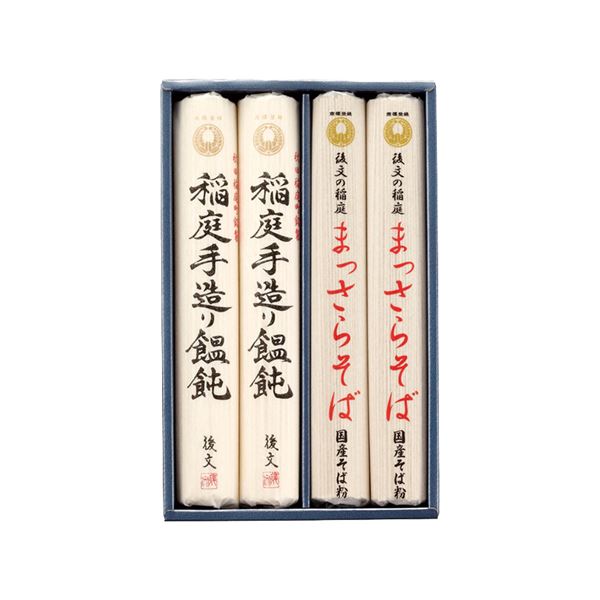 稲庭手造り饂飩
後文
稲庭手造り饂飩
後文
商標登録
後文の稲庭
まっさらそば
国産そば粉
商標登録
後文の稲庭
まっさらそば
国産そば粉